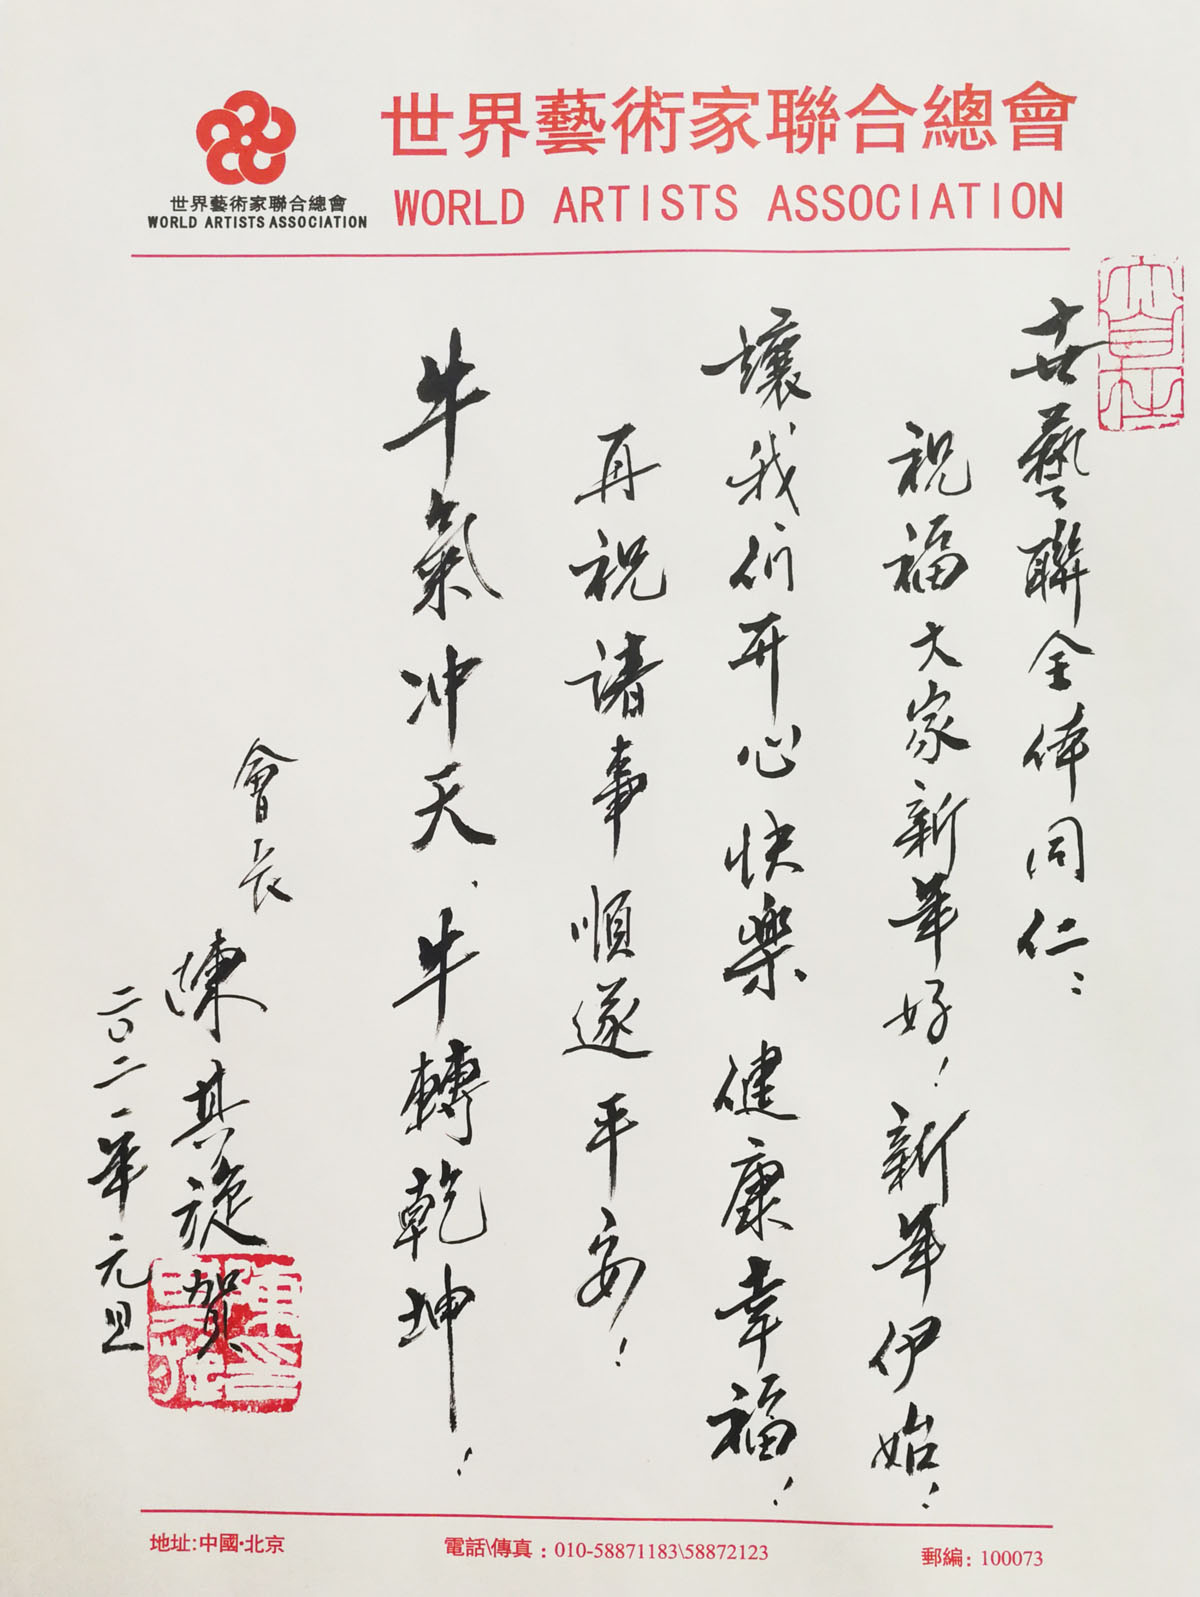 世界藝術家聯合總會
WORLD ARTISTS ASSOCIATION
世界藝術家聯合總會
WORLD ARTISTS ASSOCIATION
世藝聯全体同仁：
祝福大家新年好！新年伊始！
讓我們开心快樂健康幸福！
再祝諸事順遂平安！
牛氣冲天、牛轉乾坤！
會長
陳其旋賀
二〇二一年元旦
地址:中國·北京
電話\傳真：010-58871183\58872123
郵編：100073